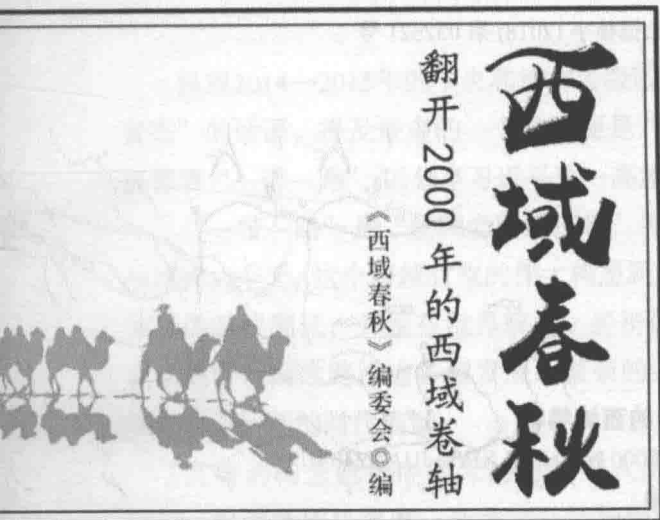 西域春秋
翻开2000年的西域卷轴
《西域春秋》编委会◎编